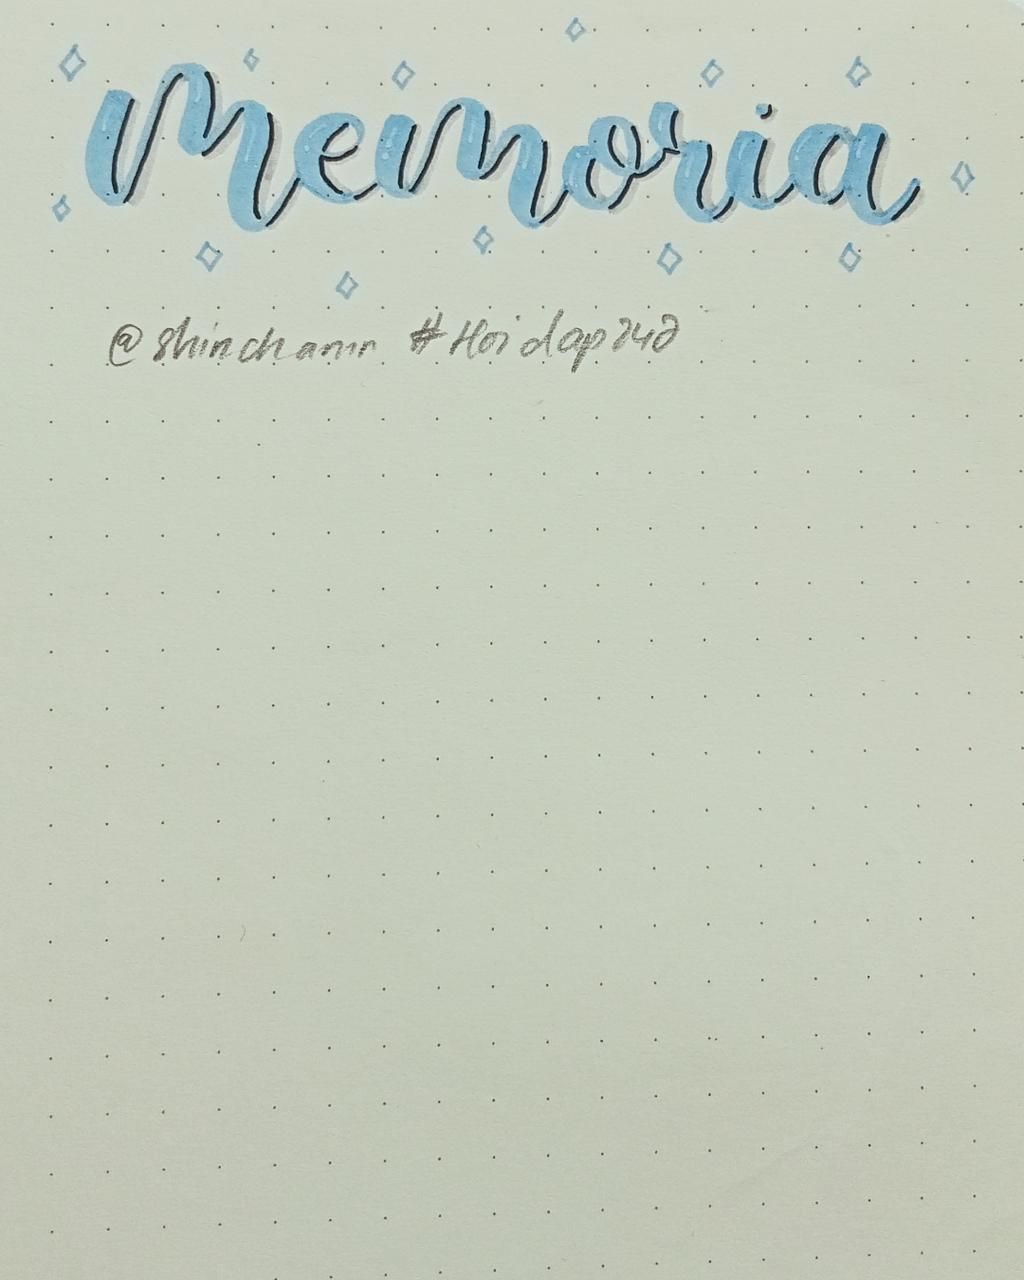 Memoria
@shinchann #Hoidap247